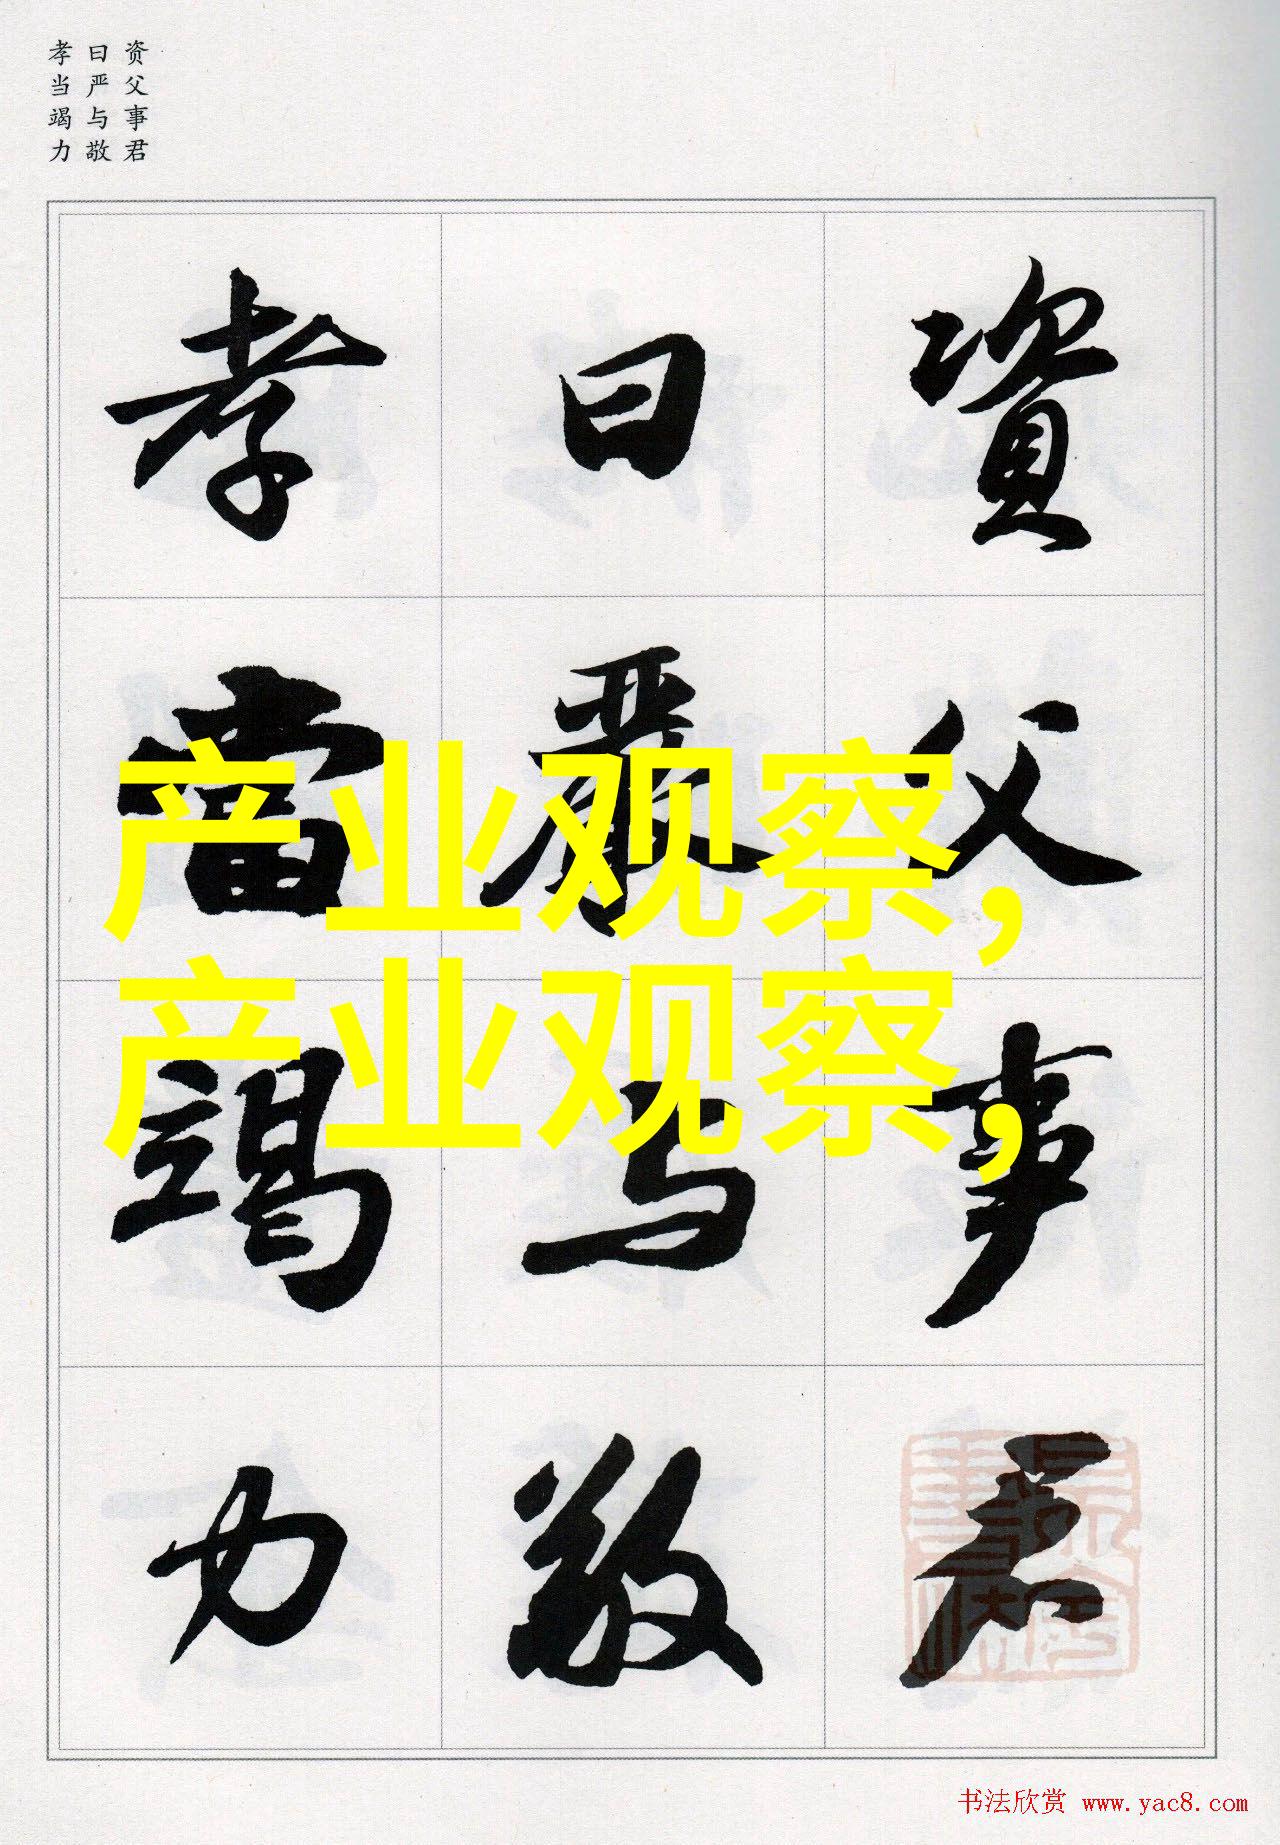 资父事君
曰严与敬
孝当竭力
資父事君
曰嚴与敬
孝當竭力
产业观察,
产业观察,
书法欣赏 www.yac8.com